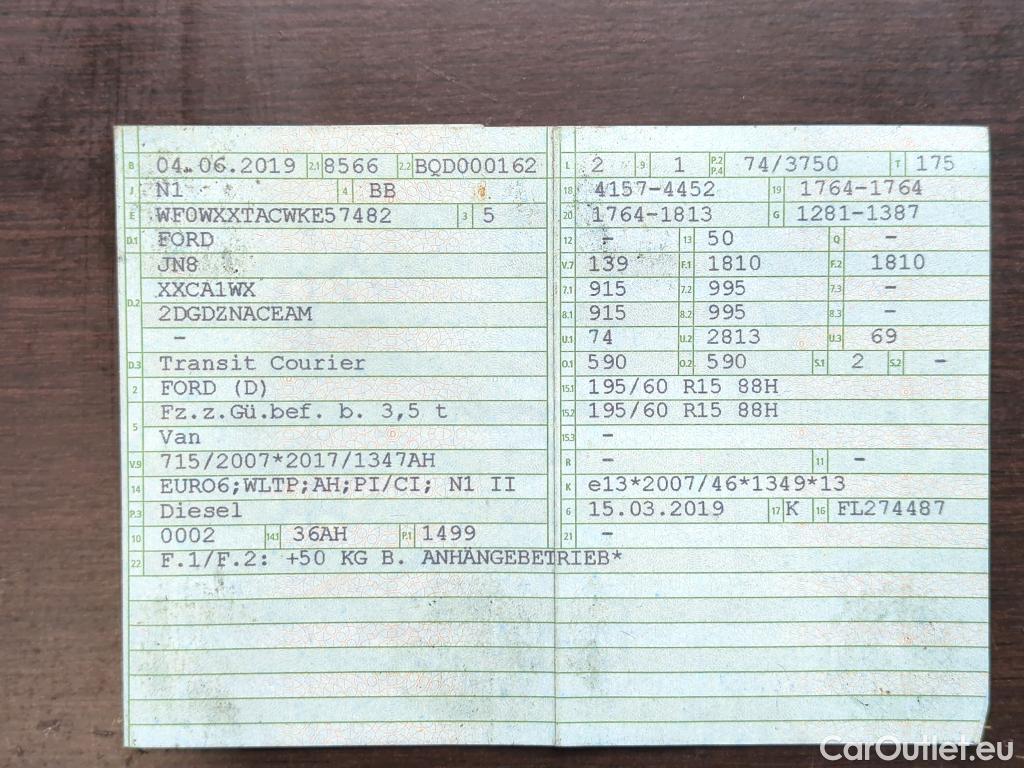 B 04.06.2019 2.1 8566 2.2 BQD000162
J N1 4 BB
E WF0WXXTACWKE57482 3 5
D.1 FORD
JN8
D.2 XXCA1WX
2DGDZNACEAM
-
D.3 Transit Courier
2 FORD (D)
5 Fz.z.Gü.bef. b. 3,5 t
Van
V.9 715/2007*2017/1347AH
14 EURO6;WLTP;AH;PI/CI; N1 II
P.3 Diesel
10 0002 14.1 36AH P.1 1499
22 F.1/F.2: +50 KG B. ANHÄNGEBETRIEB*
L 2 9 1 P.2 P.4 74/3750 T 175
18 4157-4452 19 1764-1764
20 1764-1813 G 1281-1387
12 - 13 50 Q -
V.7 139 F.1 1810 F.2 1810
7.1 915 7.2 995 7.3 -
8.1 915 8.2 995 8.3 -
U.1 74 U.2 2813 U.3 69
O.1 590 O.2 590 S.1 2 S.2 -
15.1 195/60 R15 88H
15.2 195/60 R15 88H
15.3 -
R - 11 -
K e13*2007/46*1349*13
6 15.03.2019 17 K 16 FL274487
21 -
CarOutlet.eu